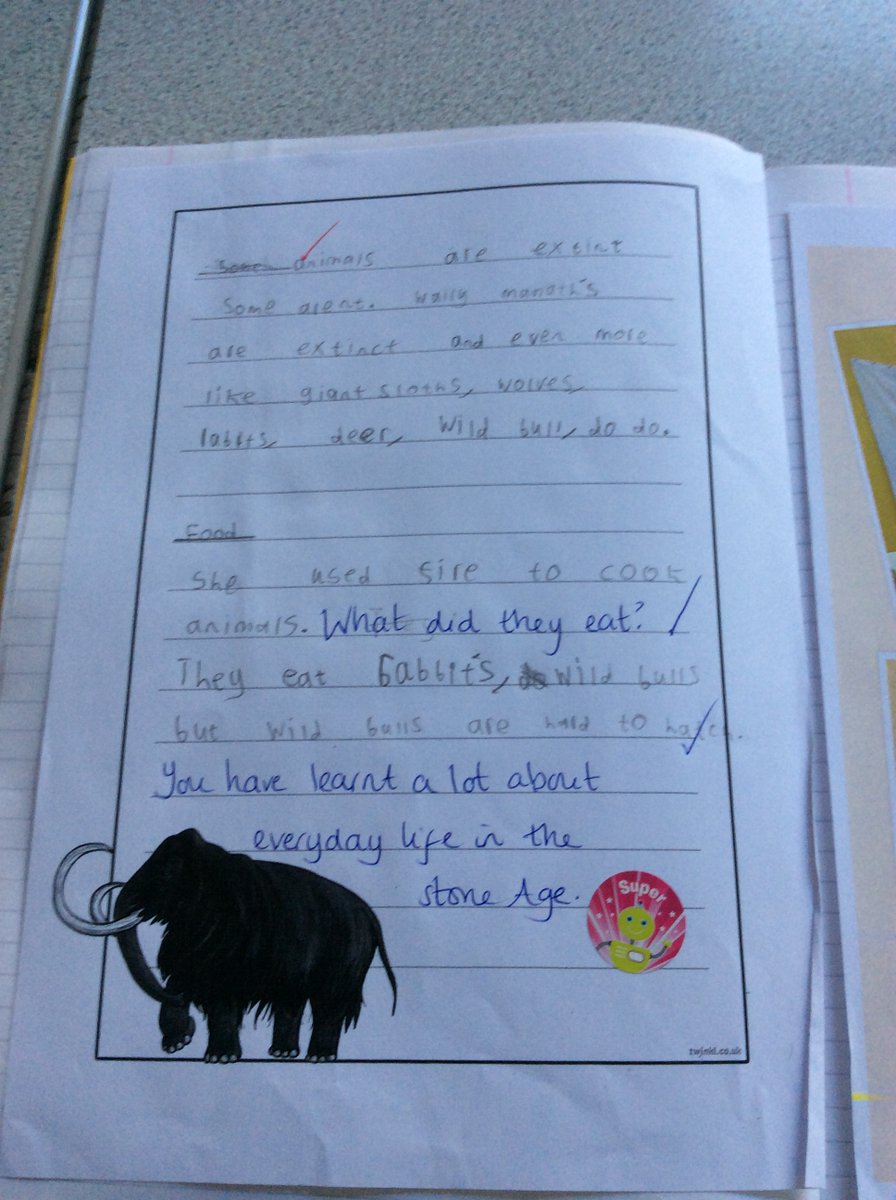 Some animals are extint
Some arent. wally manath's
are extinct and even more
like giant sloths, wolves,
rabits, deer, Wild bull, do do.
Food
She used fire to cook
animals. What did they eat?
They eat rabbit's, Wild bulls
but wild bulls are hard to
You have learnt a lot about
everyday life in the
stone Age.
Super
twinkl.co.uk